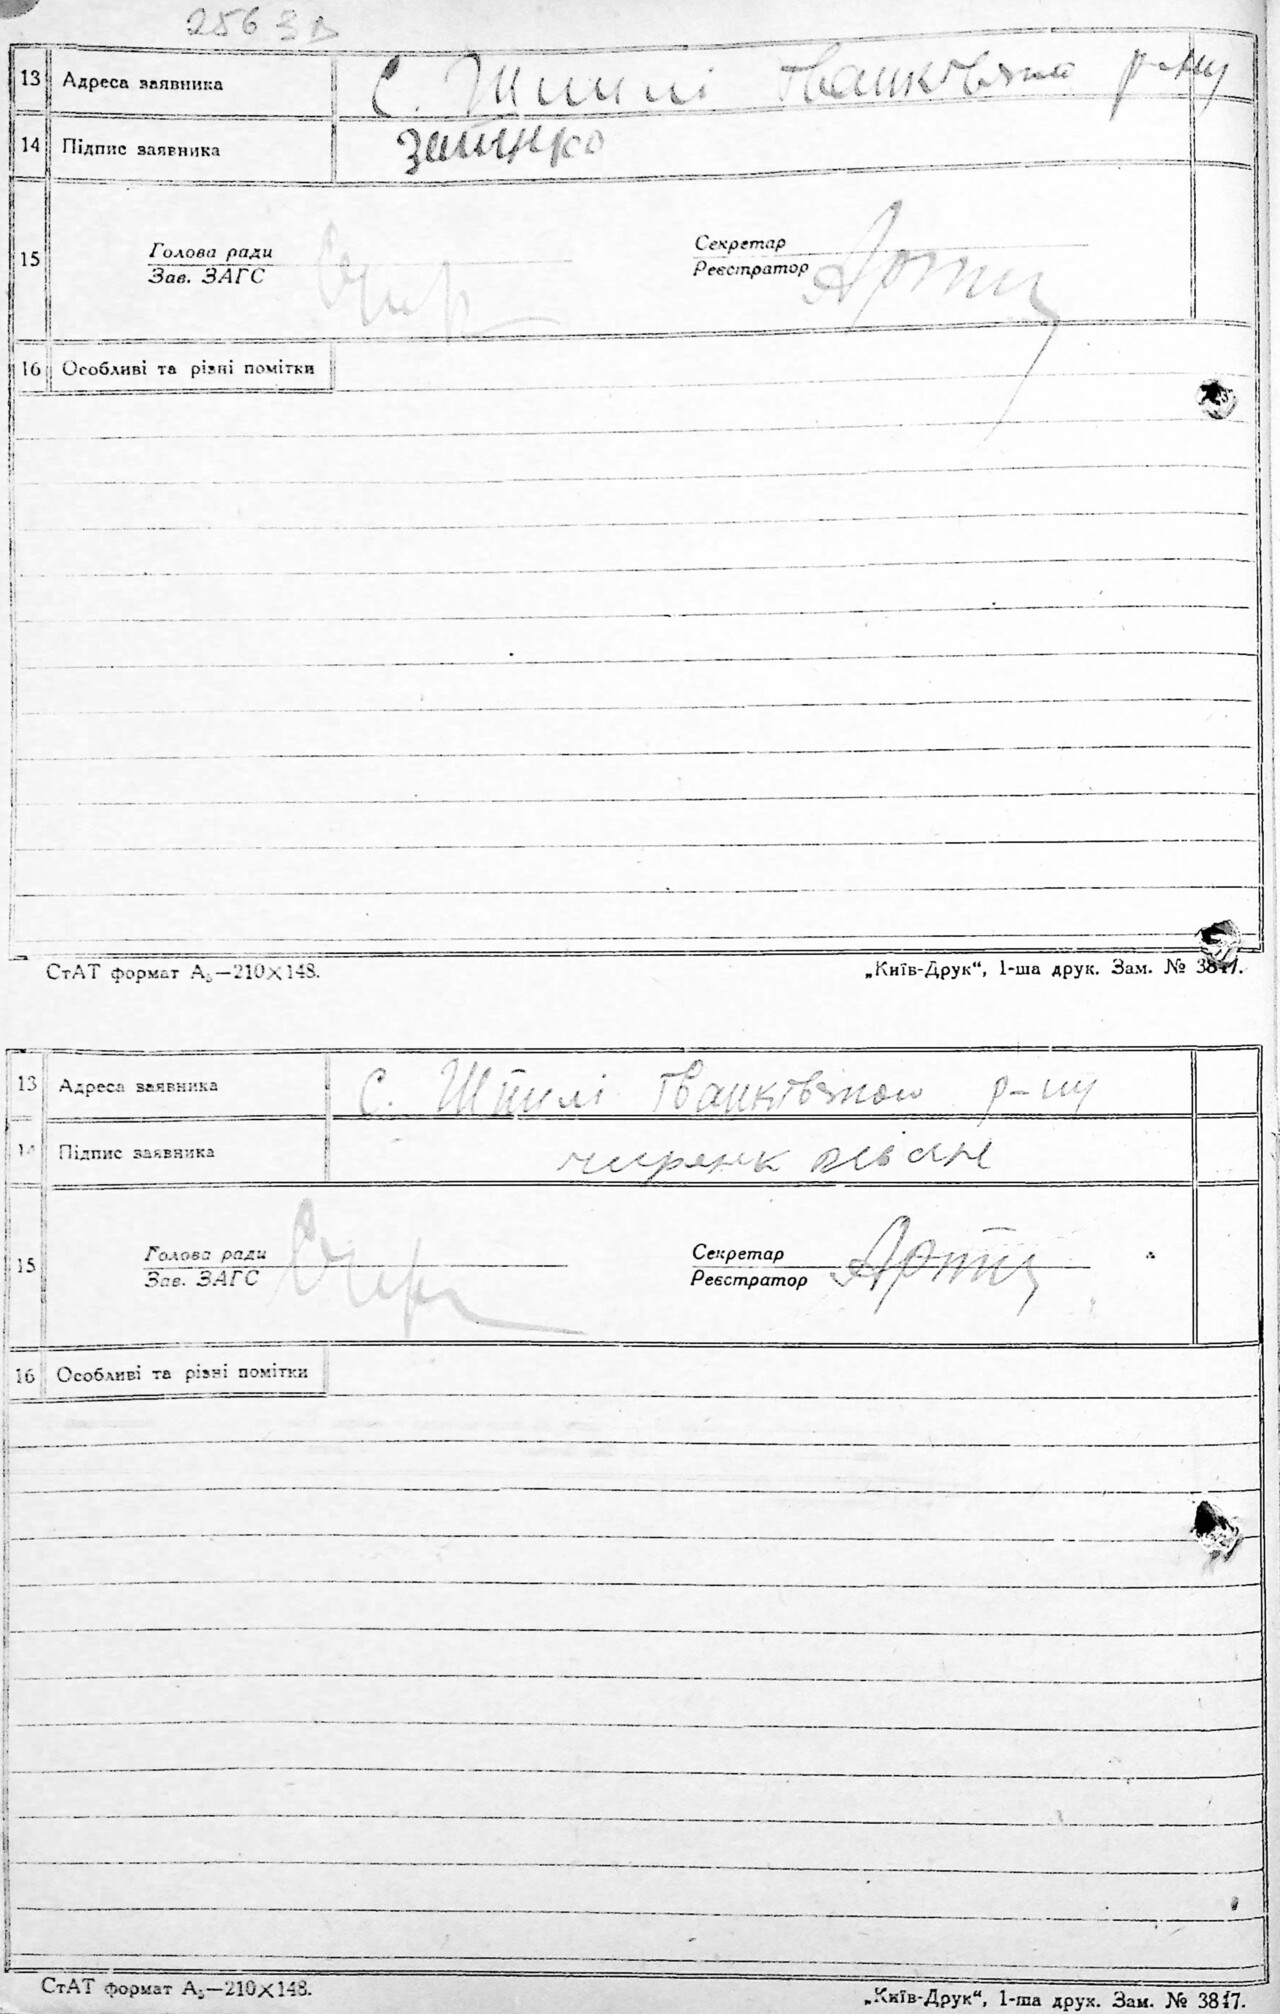 256 зв
13 Адреса заявника С. Шпилі Іванківського р-ну
14 Підпис заявника
15 Голова ради Секретар
Зав. ЗАГС Реєстратор
16 Особливі та різні помітки
СтАТ формат А₅—210×148. „Київ-Друк“, 1-ша друк. Зам. № 3847.
13 Адреса заявника С. Шпилі Іванківського р-ну
14 Підпис заявника
15 Голова ради Секретар
Зав. ЗАГС Реєстратор
16 Особливі та різні помітки
СтАТ формат А₅—210×148. „Київ-Друк“, 1-ша друк. Зам. № 3847.